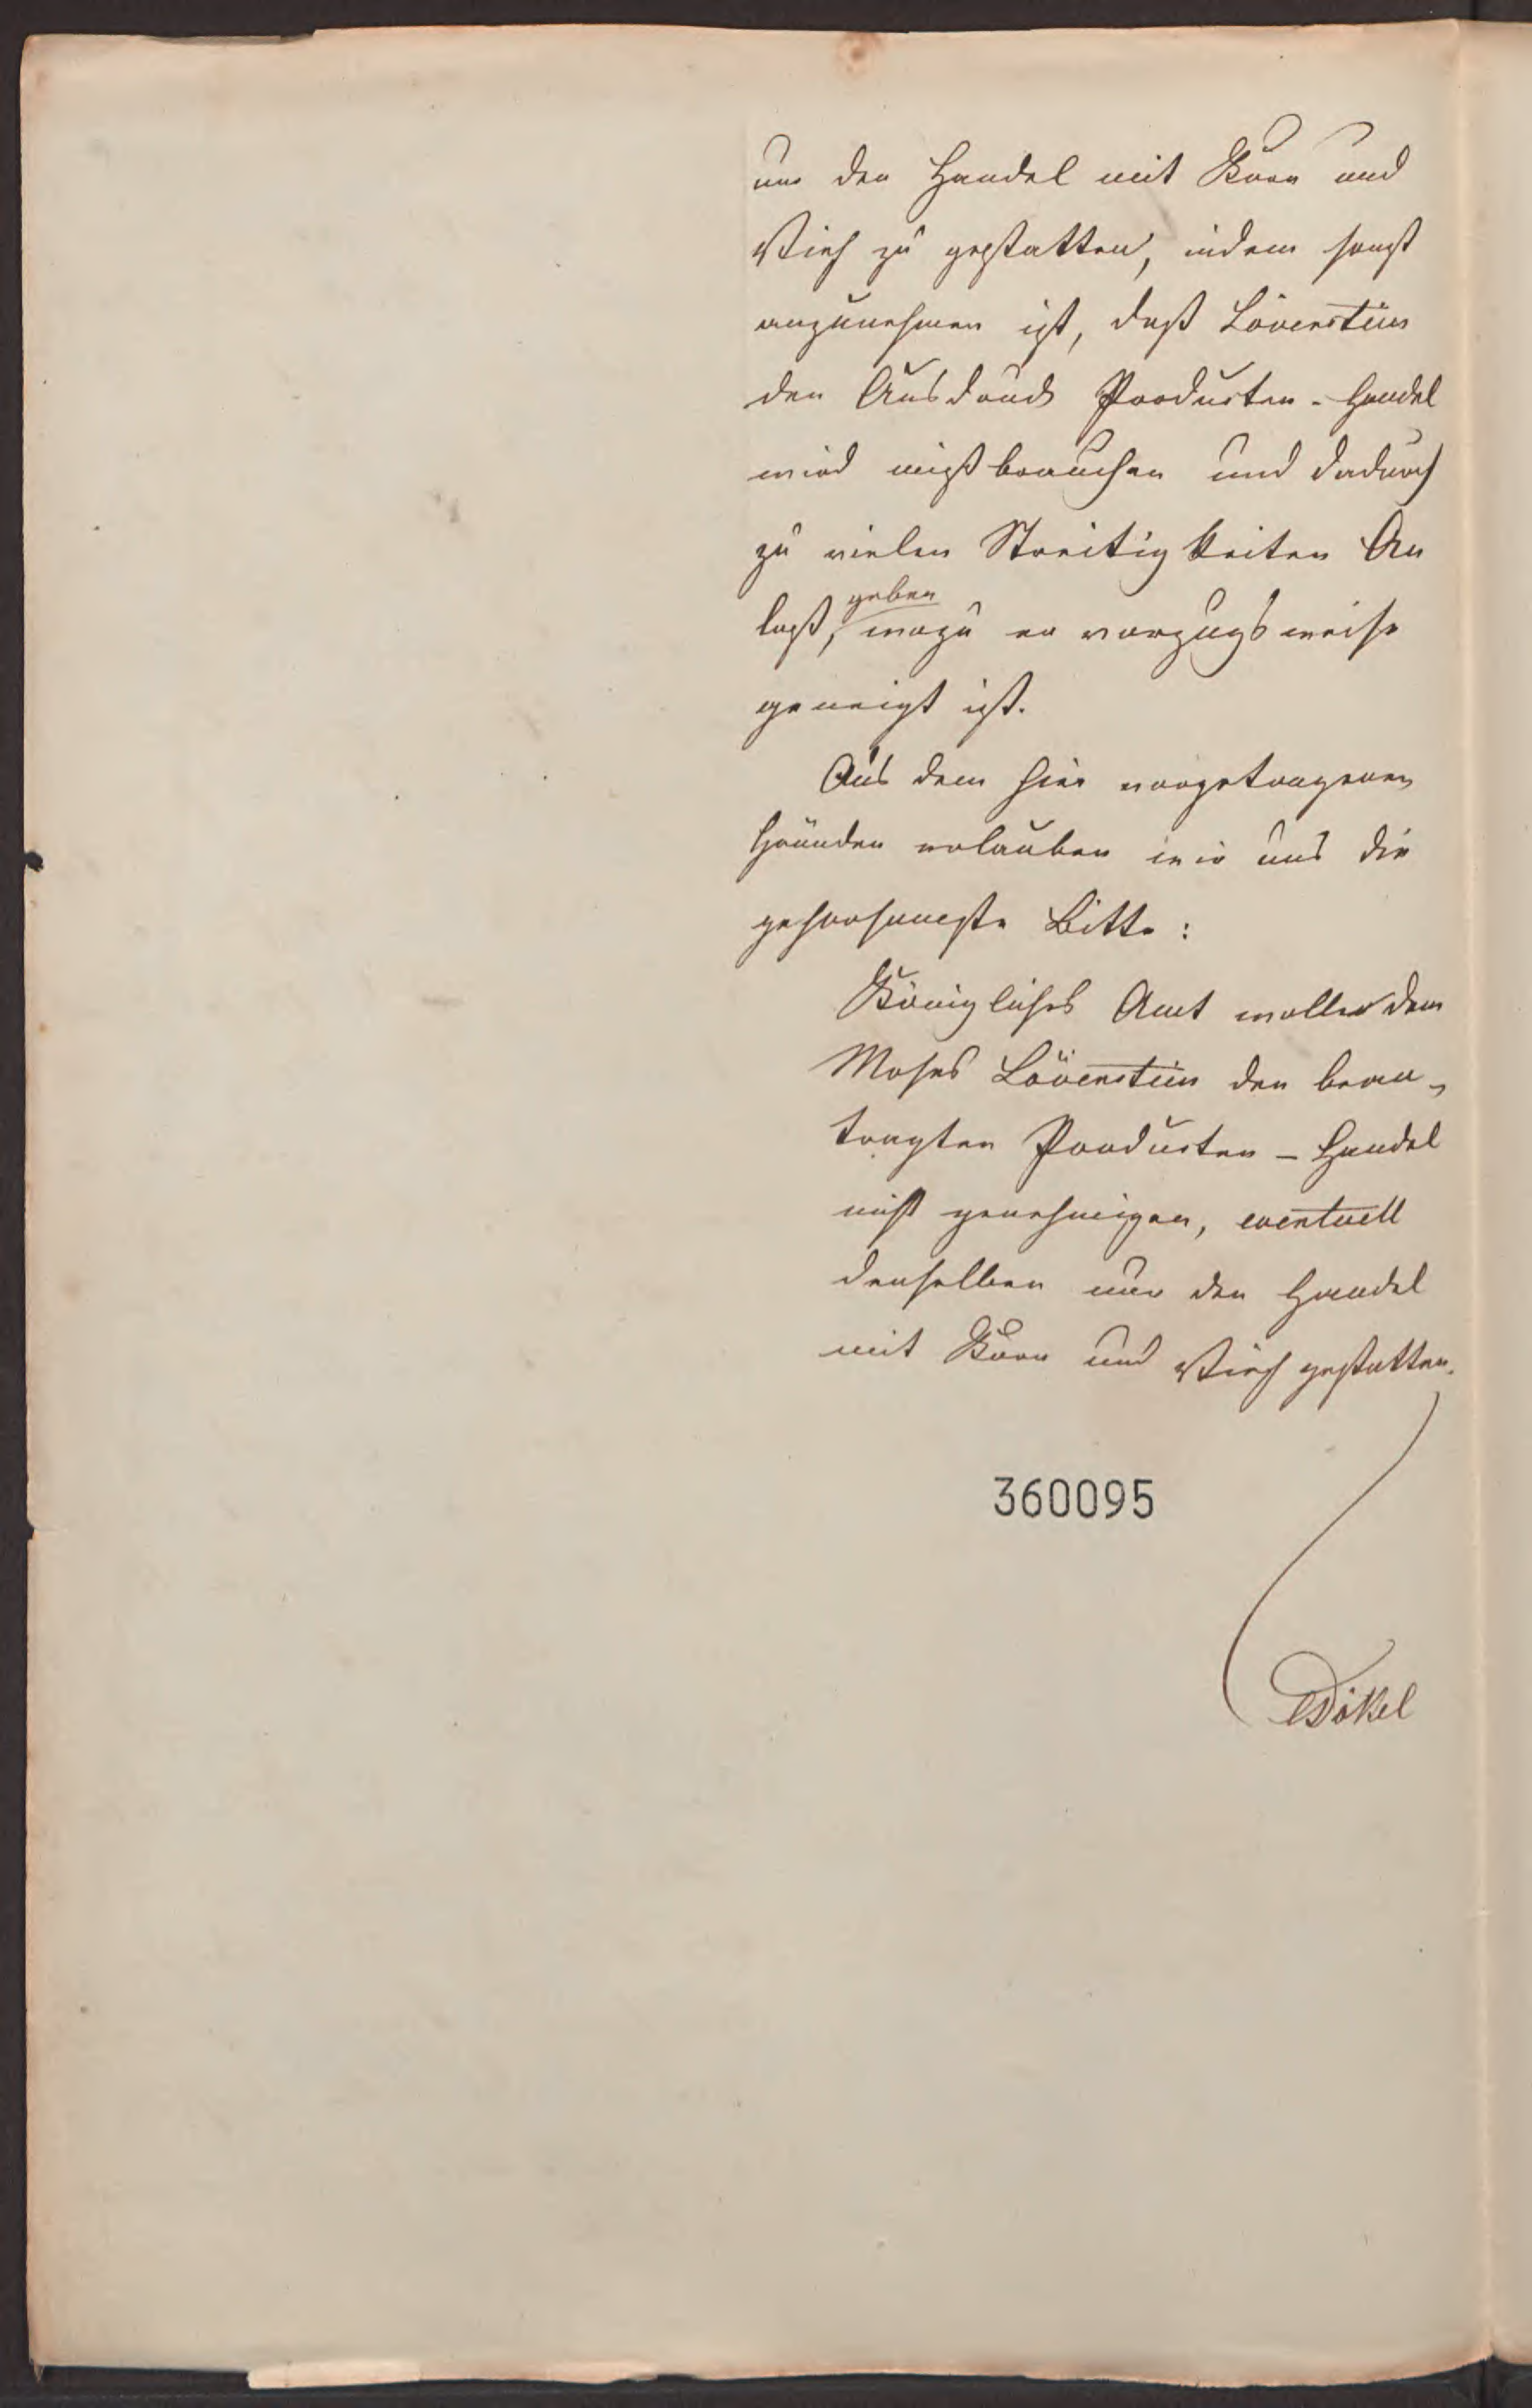 nur den Handel mit Korn und
Vieh zu gestatten, indem sonst
anzunehmen ist, daß Lövenstein
den Ausdruck Producten-Handel
wird mißbrauchen und dadurch
zu vielen Streitigkeiten An
laß, geben wozu er vorzugsweise
geneigt ist.
Aus dem hier vorgetragenen
Gründen erlauben wir uns die
gehorsamste Bitte:
Königliches Amt wolle dem
Moses Lövenstein den bean-
tragten Producten-Handel
nicht genehmigen, eventuell
denselben nur den Handel
mit Korn und Vieh gestatten.
360095
Dökel